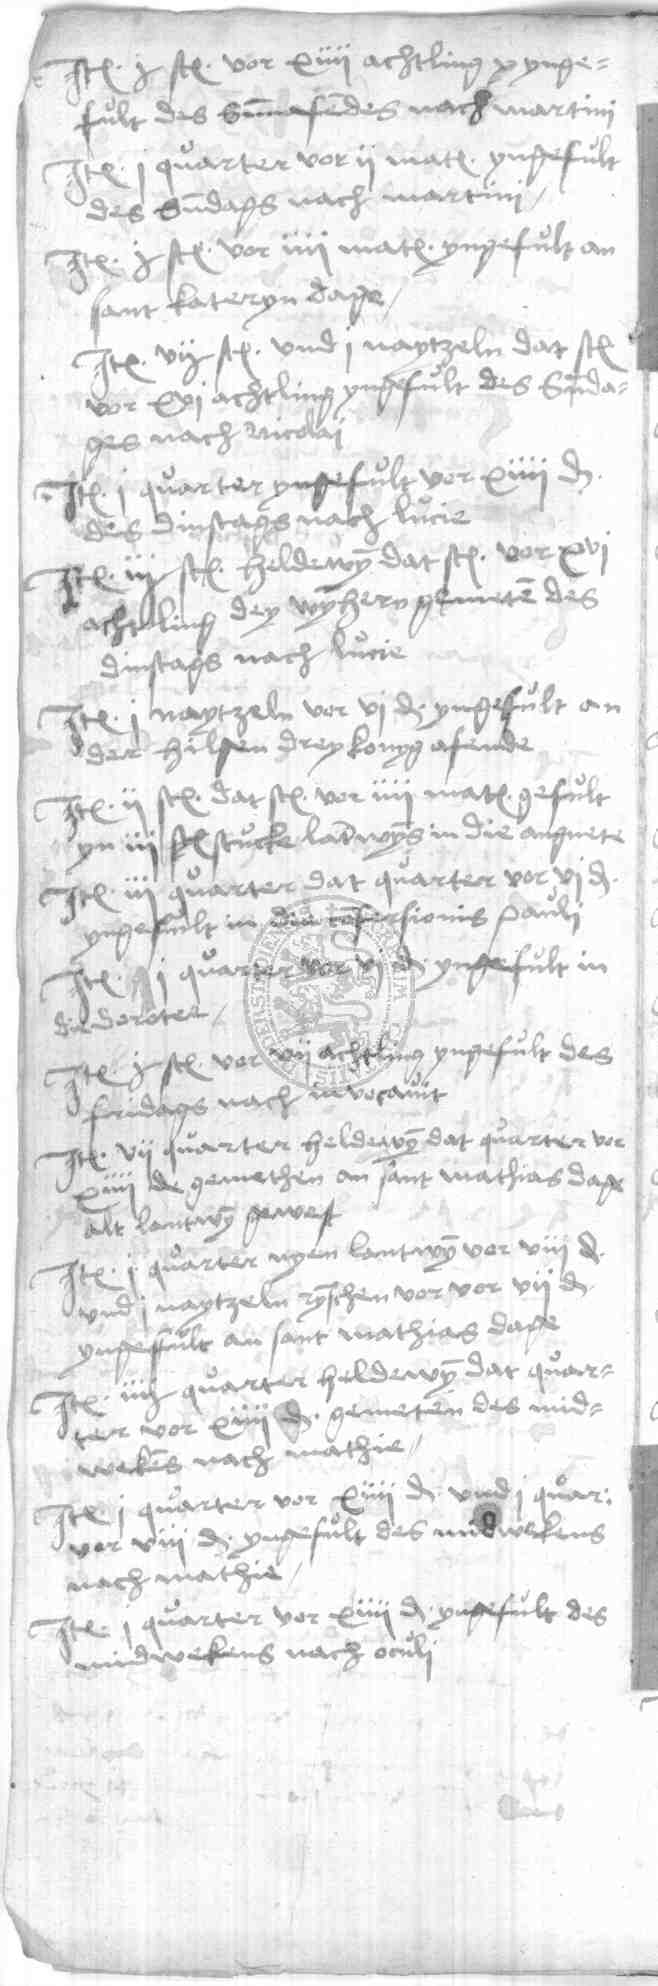 Jt(em) j st(...) vor xiiij achtling ynge=
fult des Sunnafendes nach martini
Jt(em) j quarter vor ij mat(...) yngefult
des Sundags nach martini
Jt(em) j st(...) vor iiij mat(...) yngefult an
sant kateryn dage
Jt(em) vij st(...) vnd j naptzeln dat st(...)
vor xvj achtling yngefult des Sunda=
ges nach Nicolai
Jt(em) j quarter yngefult vor xiiij d.
des dinstags nach lucie
Jt(em) iij st(...) heldewyn dat st(...) vor xvj
achtling dey wynhern gemeten des
dinstags nach lucie
Jt(em) j naptzeln vor vj d. yngefult an
der hilgen drey konyg afende
Jt(em) ij st(...) dat st(...) vor iiij mat(...) gefult
yn iij stucke lantwyns in die angnete
Jt(em) iij quarter dat quarter vor vj d.
yngefult in die confersionis pauli
Jt(em) j quarter vor vj d. yngefult in
die dorotee
Jt(em) j st(...) vor vij achtling yngefult des
fridags nach invocavit
Jt(em) vij quarter heldewyn dat quarter vor
xiiij d. gemethen an sant mathias dage
alt lantwyn gewest
Jt(em) j quarter nyen lantwyn vor viij d.
vnd j naptzeln rynschen vor vor vij d.
yngefult an sant mathias dage
Jt(em) iiij quarter heldewyn dat quar=
ter vor xiiij d. gemeten des mid=
wekens nach mathie
Jt(em) j quarter vor xiiij d. vnd j quar:
vor viij d. yngefult des midwekens
nach mathie
Jt(em) j quarter vor xiiij d. yngefult des
midwekens nach oculi